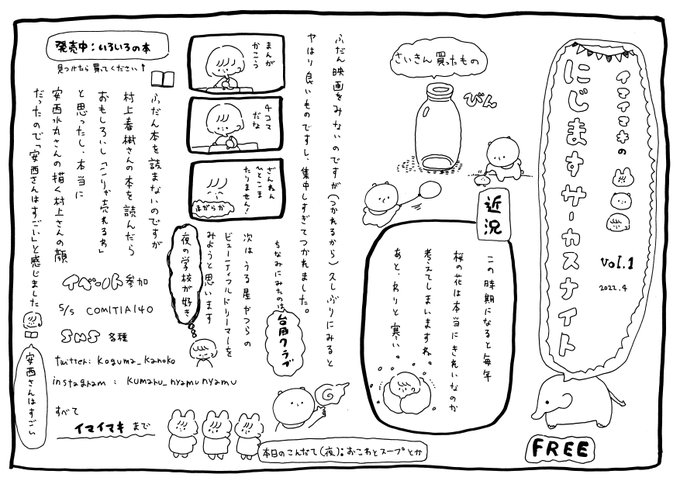 イマイマキの
にじますサーカスナイト
vol.1
2022.4
FREE
さいきん買ったもの
びん
近況
この時期になると毎年
桜の花は本当にきれいなのか
考えてしまいますね。
あと、わりと寒い。
ふだん映画をみないのですが(つかれるから)久しぶりにみると
やはり良いものですし、集中しすぎてつかれました。
ちなみにみたのは
台風クラブ
次はうる星やつらの
ビューティフルドリーマーを
みようと思います
夜の学校が好き
まんが
かこう
4コマ
だな
ざんねん
ひとこま
たりません!
まがらか
発売中:いろいろの本
見つけたら買ってください!
ふだん本を読まないのですが
村上春樹さんの本を読んだら
おもしろいし「こりゃ売れるわ」
と思ったし、本当に
安西水丸さんの描く村上さんの顔
だったので「安西さんはすごい」と感じました
安西さんはすごい
イベント参加
5/5 COMITIA140
SNS 各種
twitter: koguma_kanoko
instagram: kumaku_nyamunyamu
すべて
イマイマキ まで
本日のこんだて(夜):おこわとスープとか